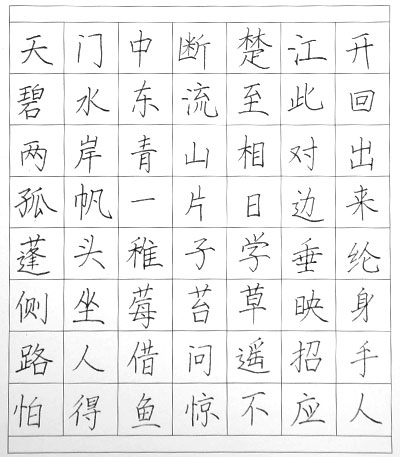 天门中断楚江开
碧水东流至此回
两岸青山相对出
孤帆一片日边来
蓬头稚子学垂纶
侧坐莓苔草映身
路人借问遥招手
怕得鱼惊不应人